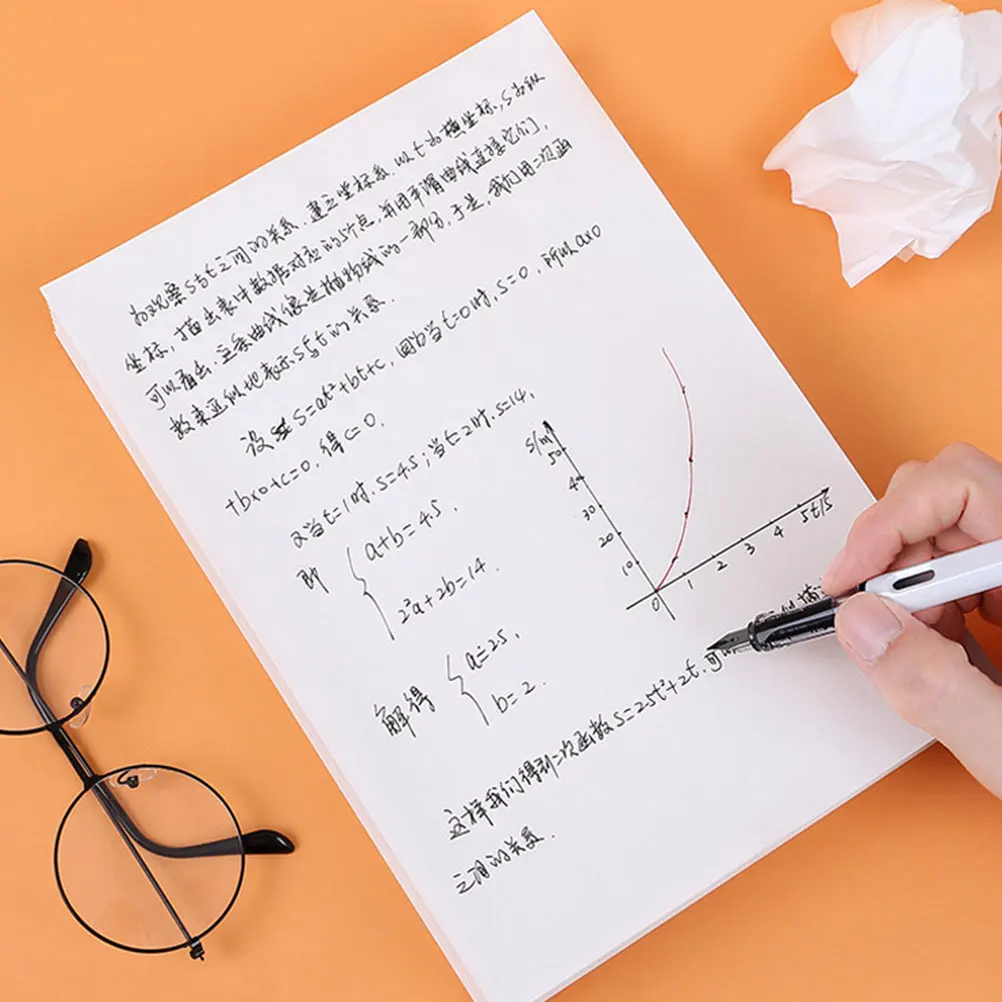 为观察S与t之间的关系,建立坐标系,以t为横坐标,S为纵
坐标,描出表中数据对应的5个点,并用平滑曲线连接它们,
可以看出,这条曲线像是抛物线的一部分,于是,我们用二次函
数来近似地表示S与t的关系.
设S=at²+bt+c,因为当t=0时,s=0,所以a×0
+b×0+c=0,得c=0.
又当t=1时,s=4.5;当t=2时,s=14,
即 a+b=4.5,
2²a+2b=14.
解得 a=2.5,
b=2.
S/m
50
40
30
20
10
0 1 2 3 4 5 t/s
这样我们得到二次函数S=2.5t²+2t.可以
之间的关系.